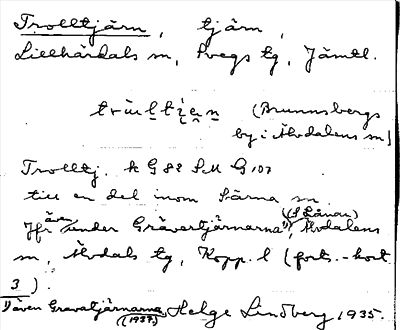 Trolltjärn, tjärn,
Lillhärdals sn, Svegs tg, Jämtl.
(Brunnsbergs
by i Älvdalens sn)
Trolltj. k G 82 S.M G 107
till en del inom Särna sn.
Jfr även under Grävartjärnarna 1) (S Lånan), Älvdalens
sn, Älvdals tg, Kopp. l (forts.-kort
3).
1) även Gravatjärnarna (1937.) Helge Lindberg 1935.